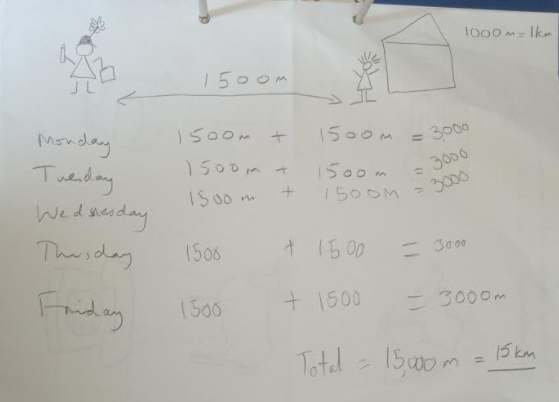 1000m = 1km
1500m
Monday 1500m + 1500m = 3000
Tuesday 1500m + 1500m = 3000
Wednesday 1500m + 1500m = 3000
Thursday 1500 + 1500 = 3000
Friday 1500 + 1500 = 3000m
Total = 15,000m = 15km